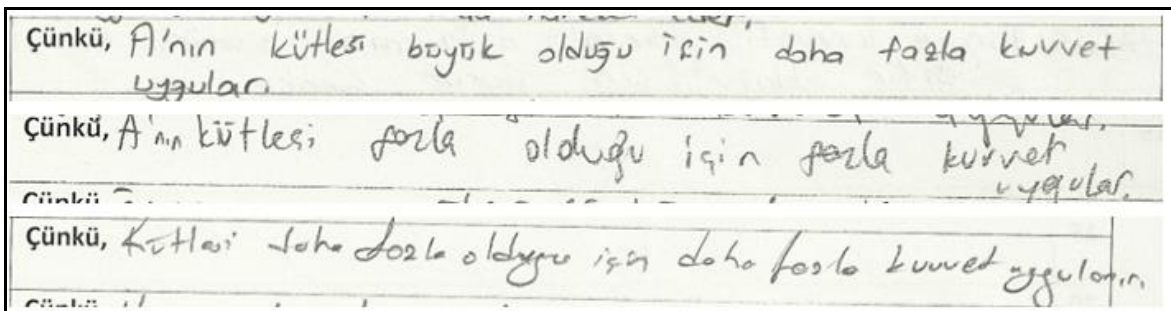 Çünkü, A'nın kütlesi büyük olduğu için daha fazla kuvvet
uygular
Çünkü, A'nın kütlesi fazla olduğu için fazla kuvvet
uygular.
Çünkü
Çünkü, Kütlesi daha fazla olduğu için daha fazla kuvvet uygulanır.
Çünkü